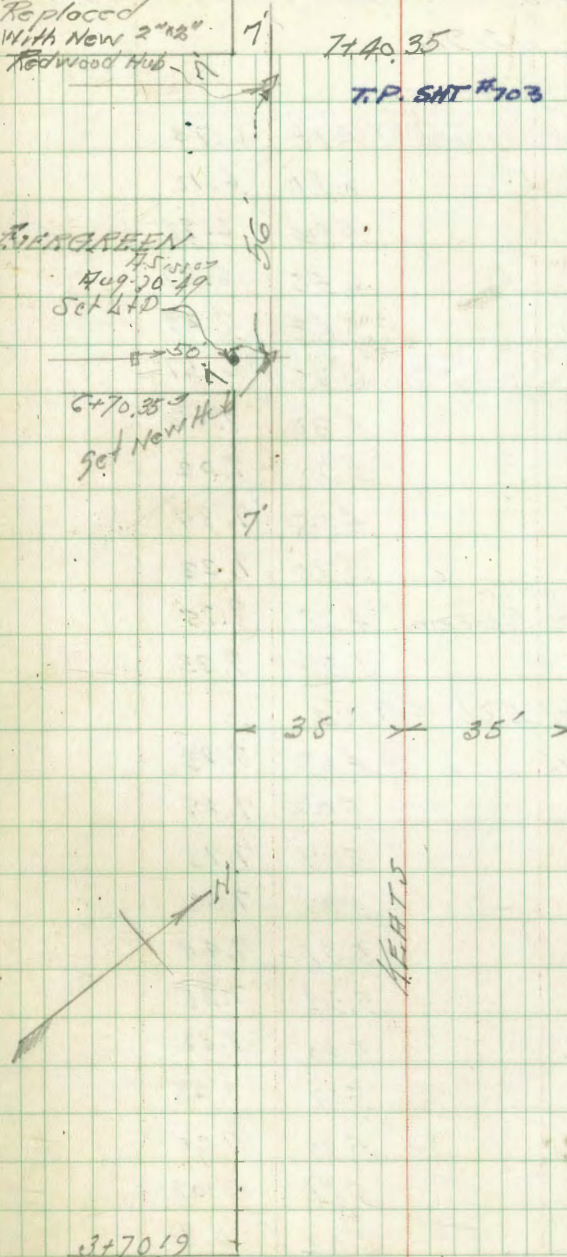 Replaced
With New 2"x2"
Redwood Hub
7'
7'
7+40.35
T.P. SHT #703
56'
EVERGREEN
Aug-30-49
Set L+D
50'
7'
6+70.35
Set New Hub
7'
35' 35'
N
KEATS
3+70.19